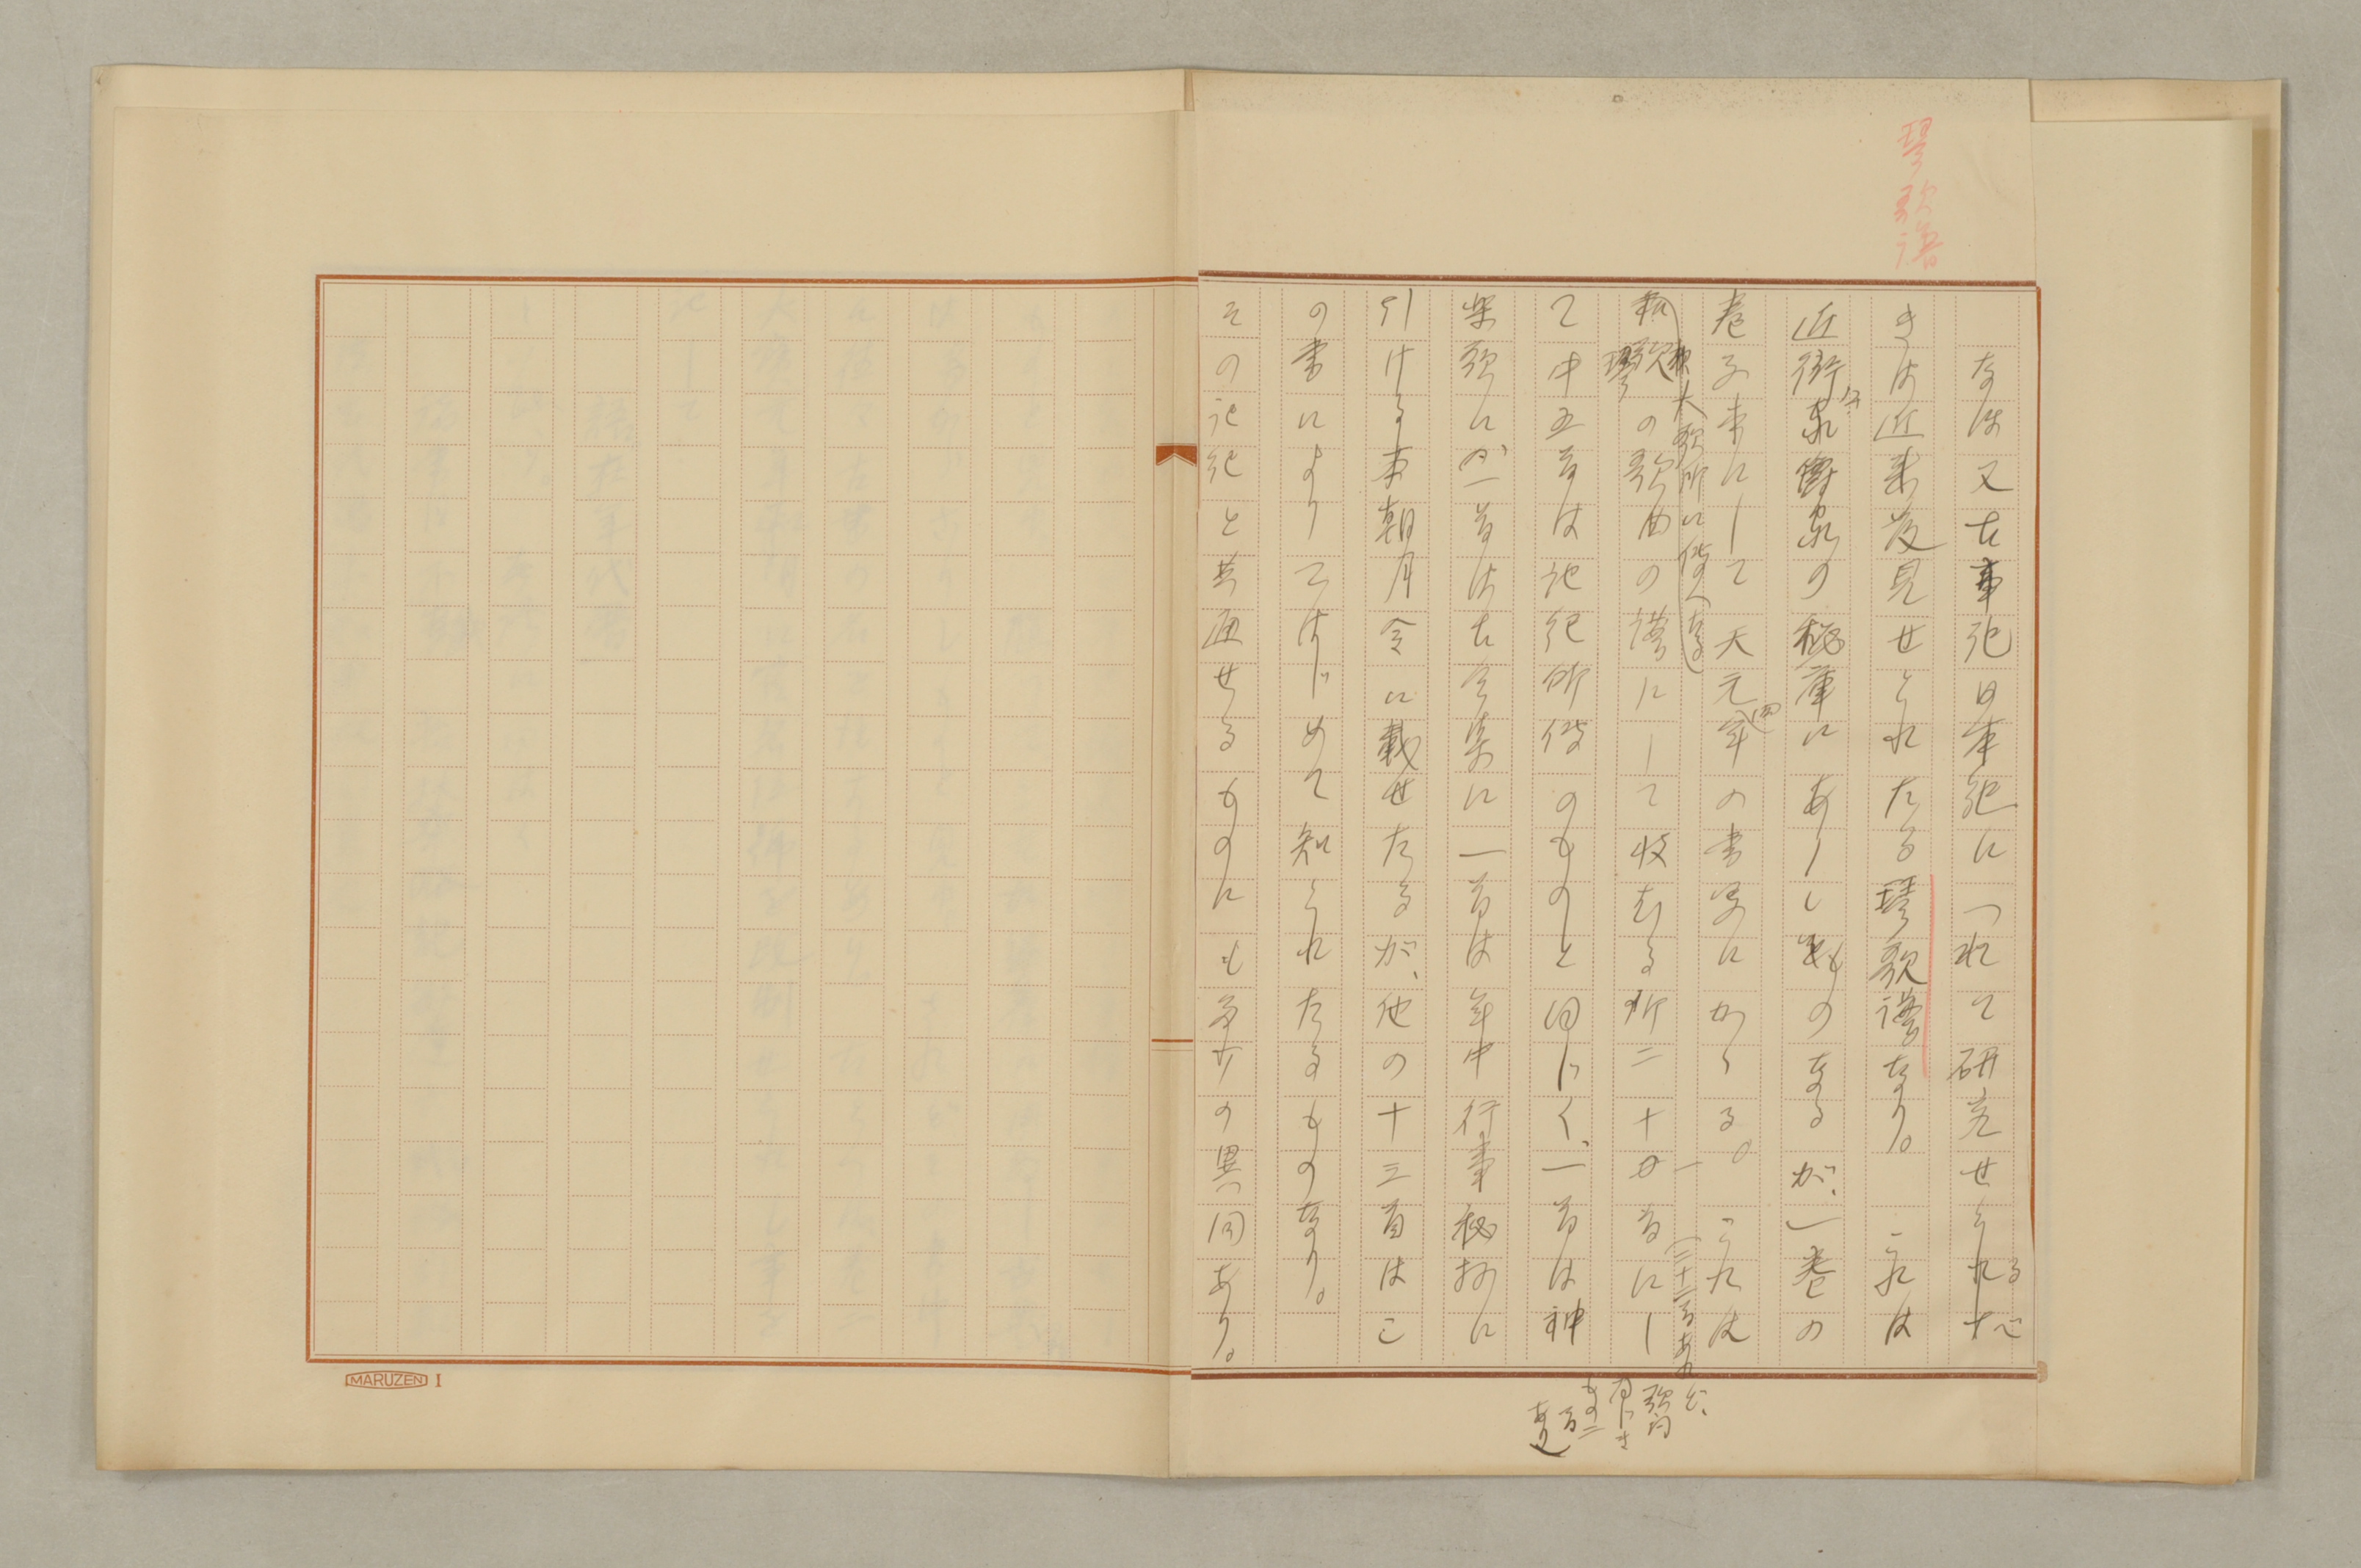 琴歌譜
なほ又古事記日本紀につれて研究せらるべ
きは近来発見せられたる琴歌譜なり。これは
近衛公爵家の秘庫にありしものなるが、一巻の
巻子本にして天元四年の書写にかゝる。これは
(大歌所に伝へたる)
琴歌の歌曲の譜にして収むる所二十一首にし
(二十二首あれど、歌詞同じきもの二首あり)
て中五首は記紀所伝のものと同じく、一首は神
楽歌に、一首は古今集に一首は年中行事秘抄に
引ける本朝月令に載せたるが、他の十三首はこ
の書によりてはじめて知られたるものなり。
その記紀と共通せるものにも多少の異同あり。
MARUZEN I